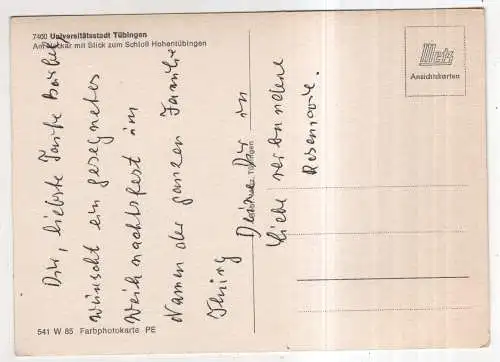 7400 Universitätsstadt Tübingen
Am Neckar mit Blick zum Schloß Hohentübingen
Metz
Ansichtskarten
Dir, liebste Tante Bärbel,
wünscht ein gesegnetes
Weihnachtsfest im
Namen der ganzen Familie
Deine Dir in
Liebe verbundene
Rosemarie.
Tübingen
541 W 85 Farbphotokarte PE